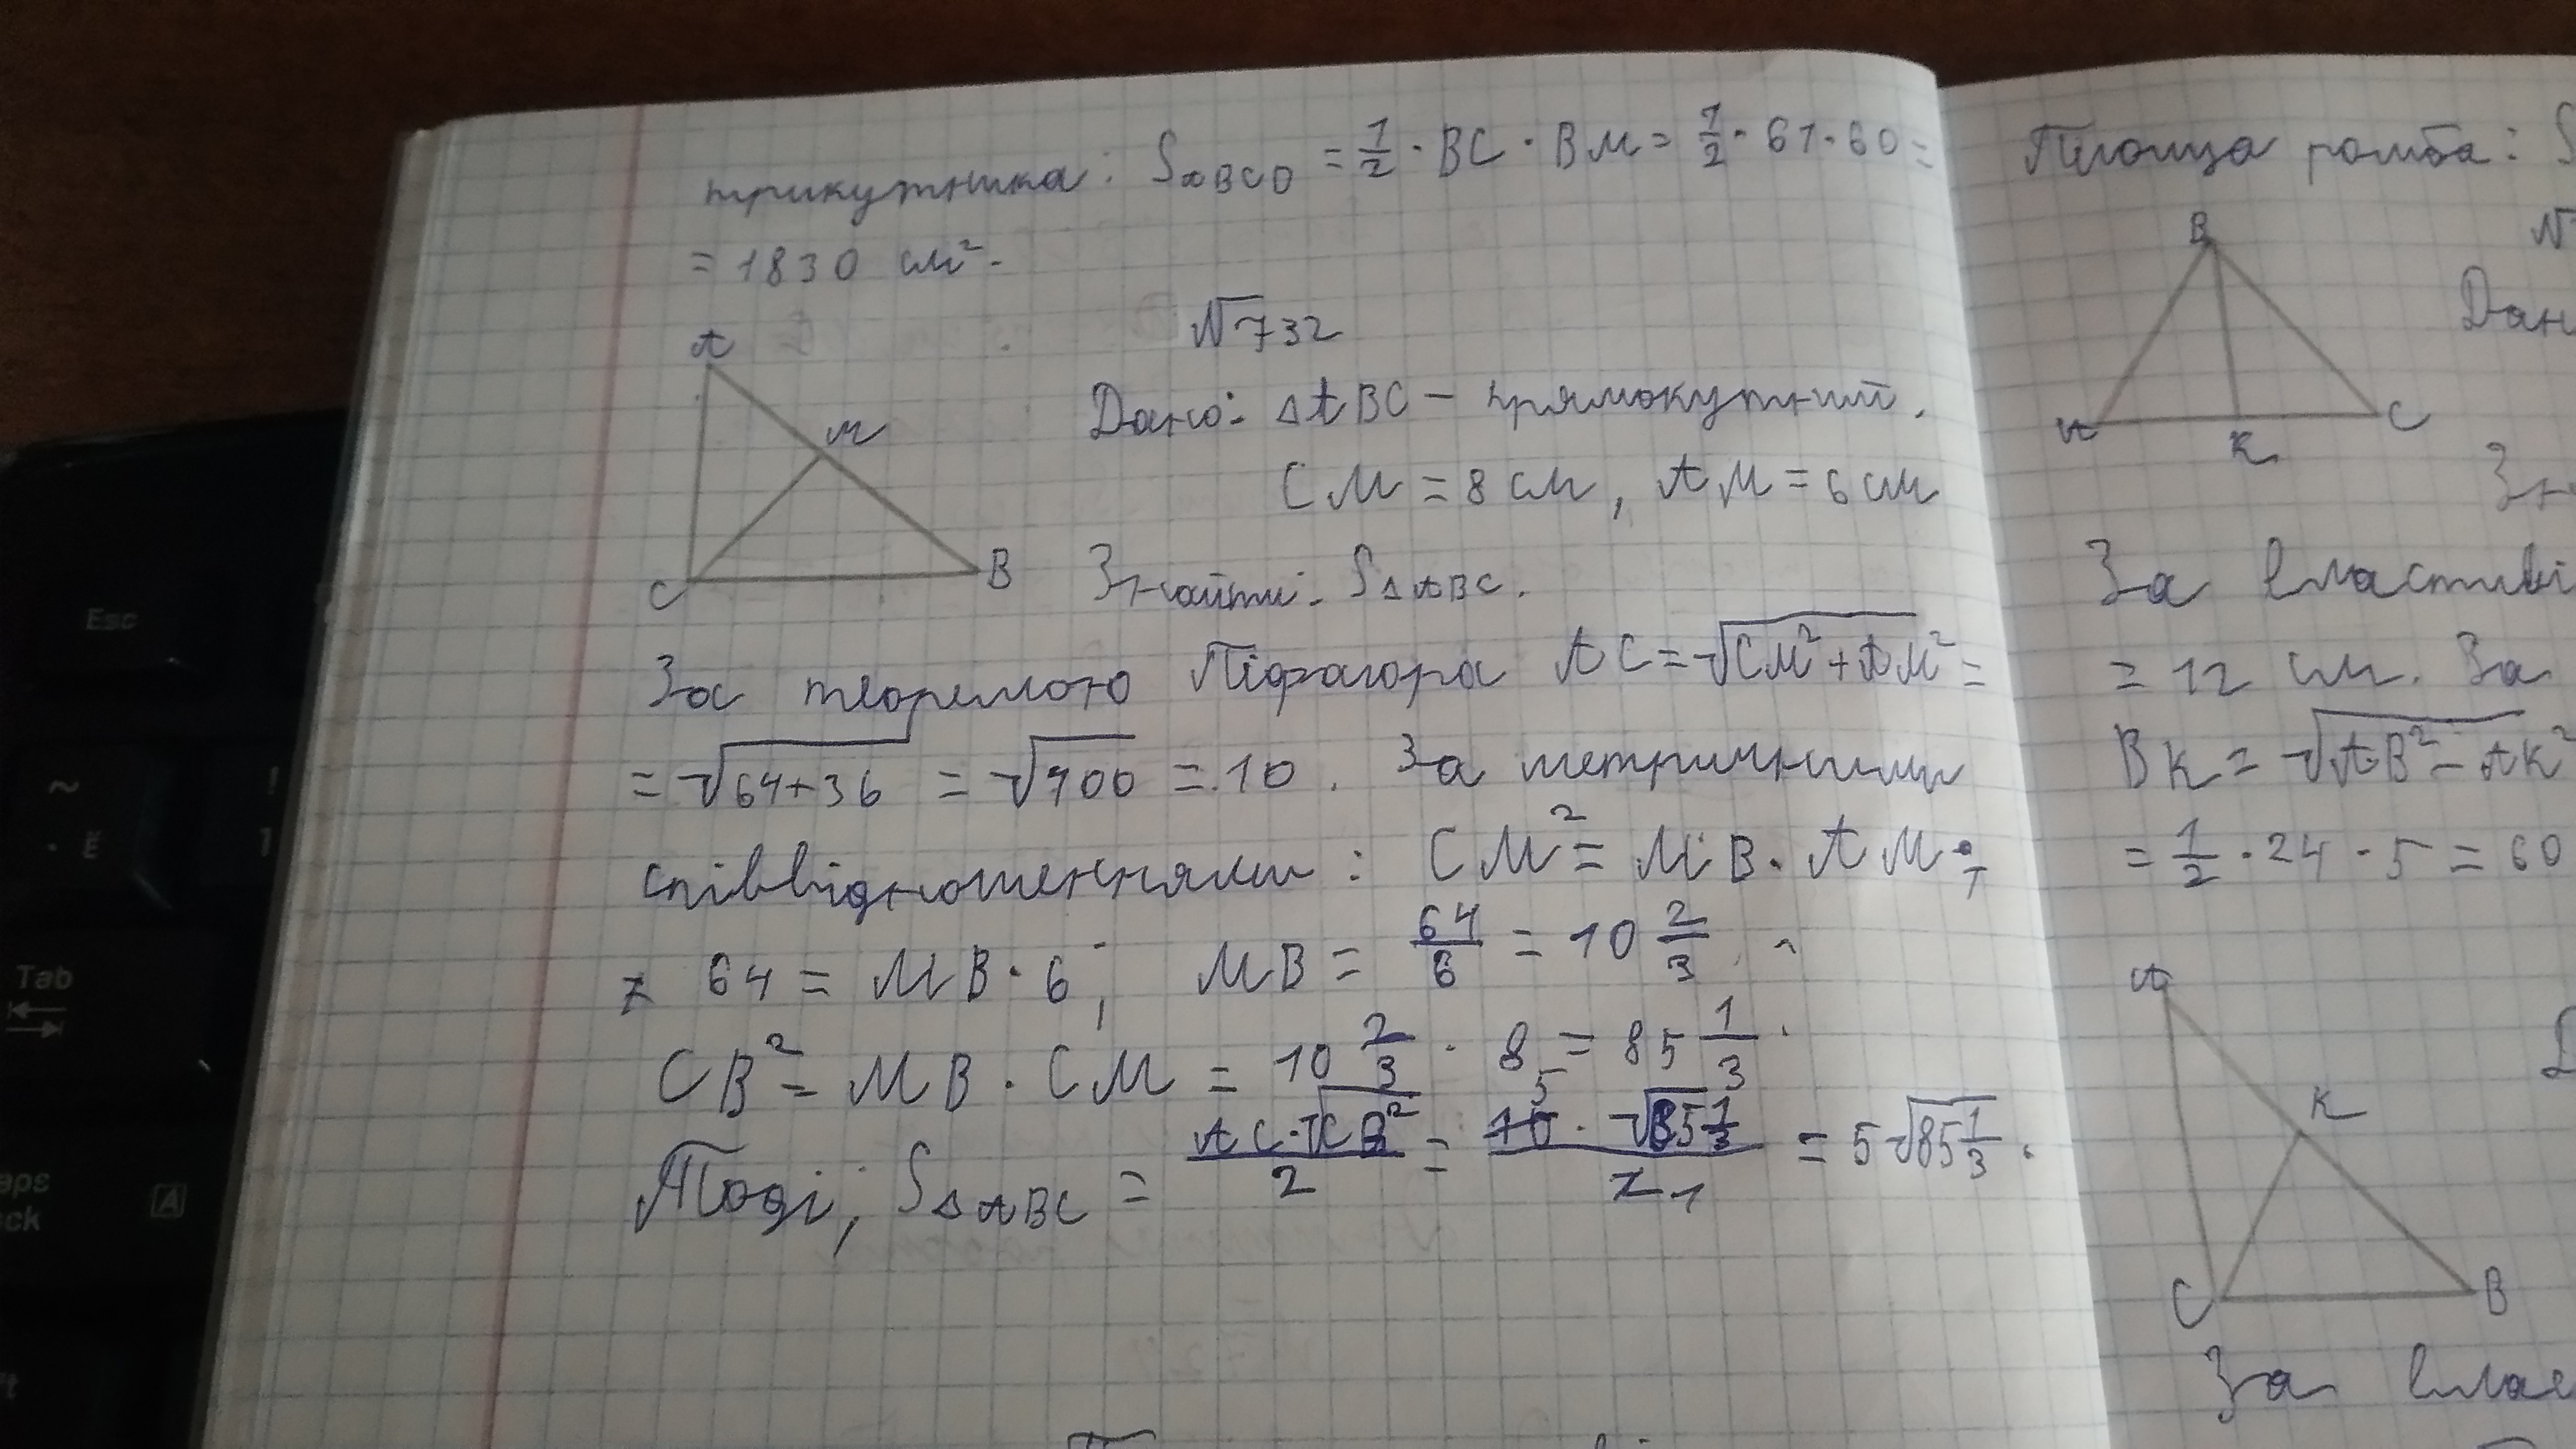 трикутника: S△BCD = 1/2 · BC · BM = 1/2 · 61 · 60 =
= 1830 см².
№732
A
M
C
B
Дано: △ABC – прямокутний.
CM = 8 см, AM = 6 см
Знайти: S△ABC.
За теоремою Піфагора AC = √(CM² + AM²) =
= √(64+36) = √100 = 10. За метричними
співвідношеннями: CM² = MB · AM
64 = MB · 6; MB = 64/6 = 10 2/3.
CB² = MB · CM = 10 2/3 · 8 = 85 1/3.
Тоді; S△ABC = (AC · √CB²)/2 = (10 · √85 1/3)/2 = 5√85 1/3.
5
1
Площа ромба: S
B
A
K
C
Дан
Зн
За властиві
= 12 см. За
BK = √(AB² – AK²
= 1/2 · 24 · 5 = 60
A
K
C
B
За влас
Esc
~
Ё
Tab
aps
ck
A